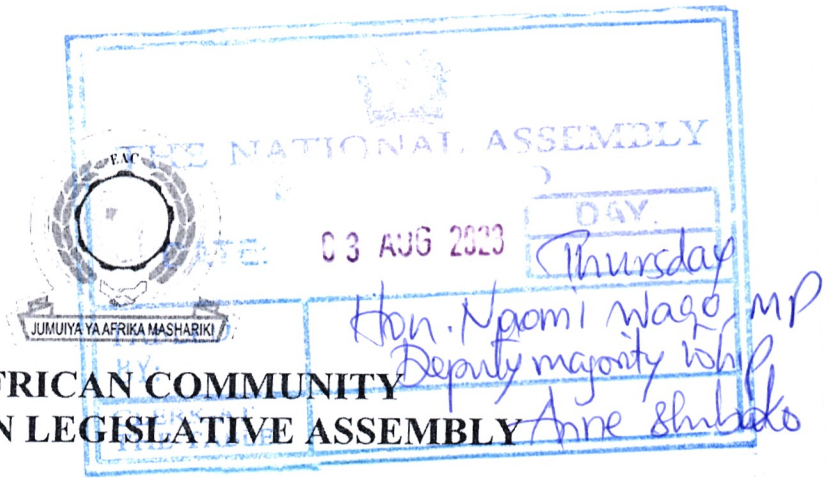 THE NATIONAL ASSEMBLY
EAC
DATE: 03 AUG 2023
DAY.
Thursday
JUMUIYA YA AFRIKA MASHARIKI
Hon. Naomi Waqo, MP
BY:
Deputy majority whip
FRICAN COMMUNITY
CLERK
N LEGISLATIVE ASSEMBLY
Anne Shibuko